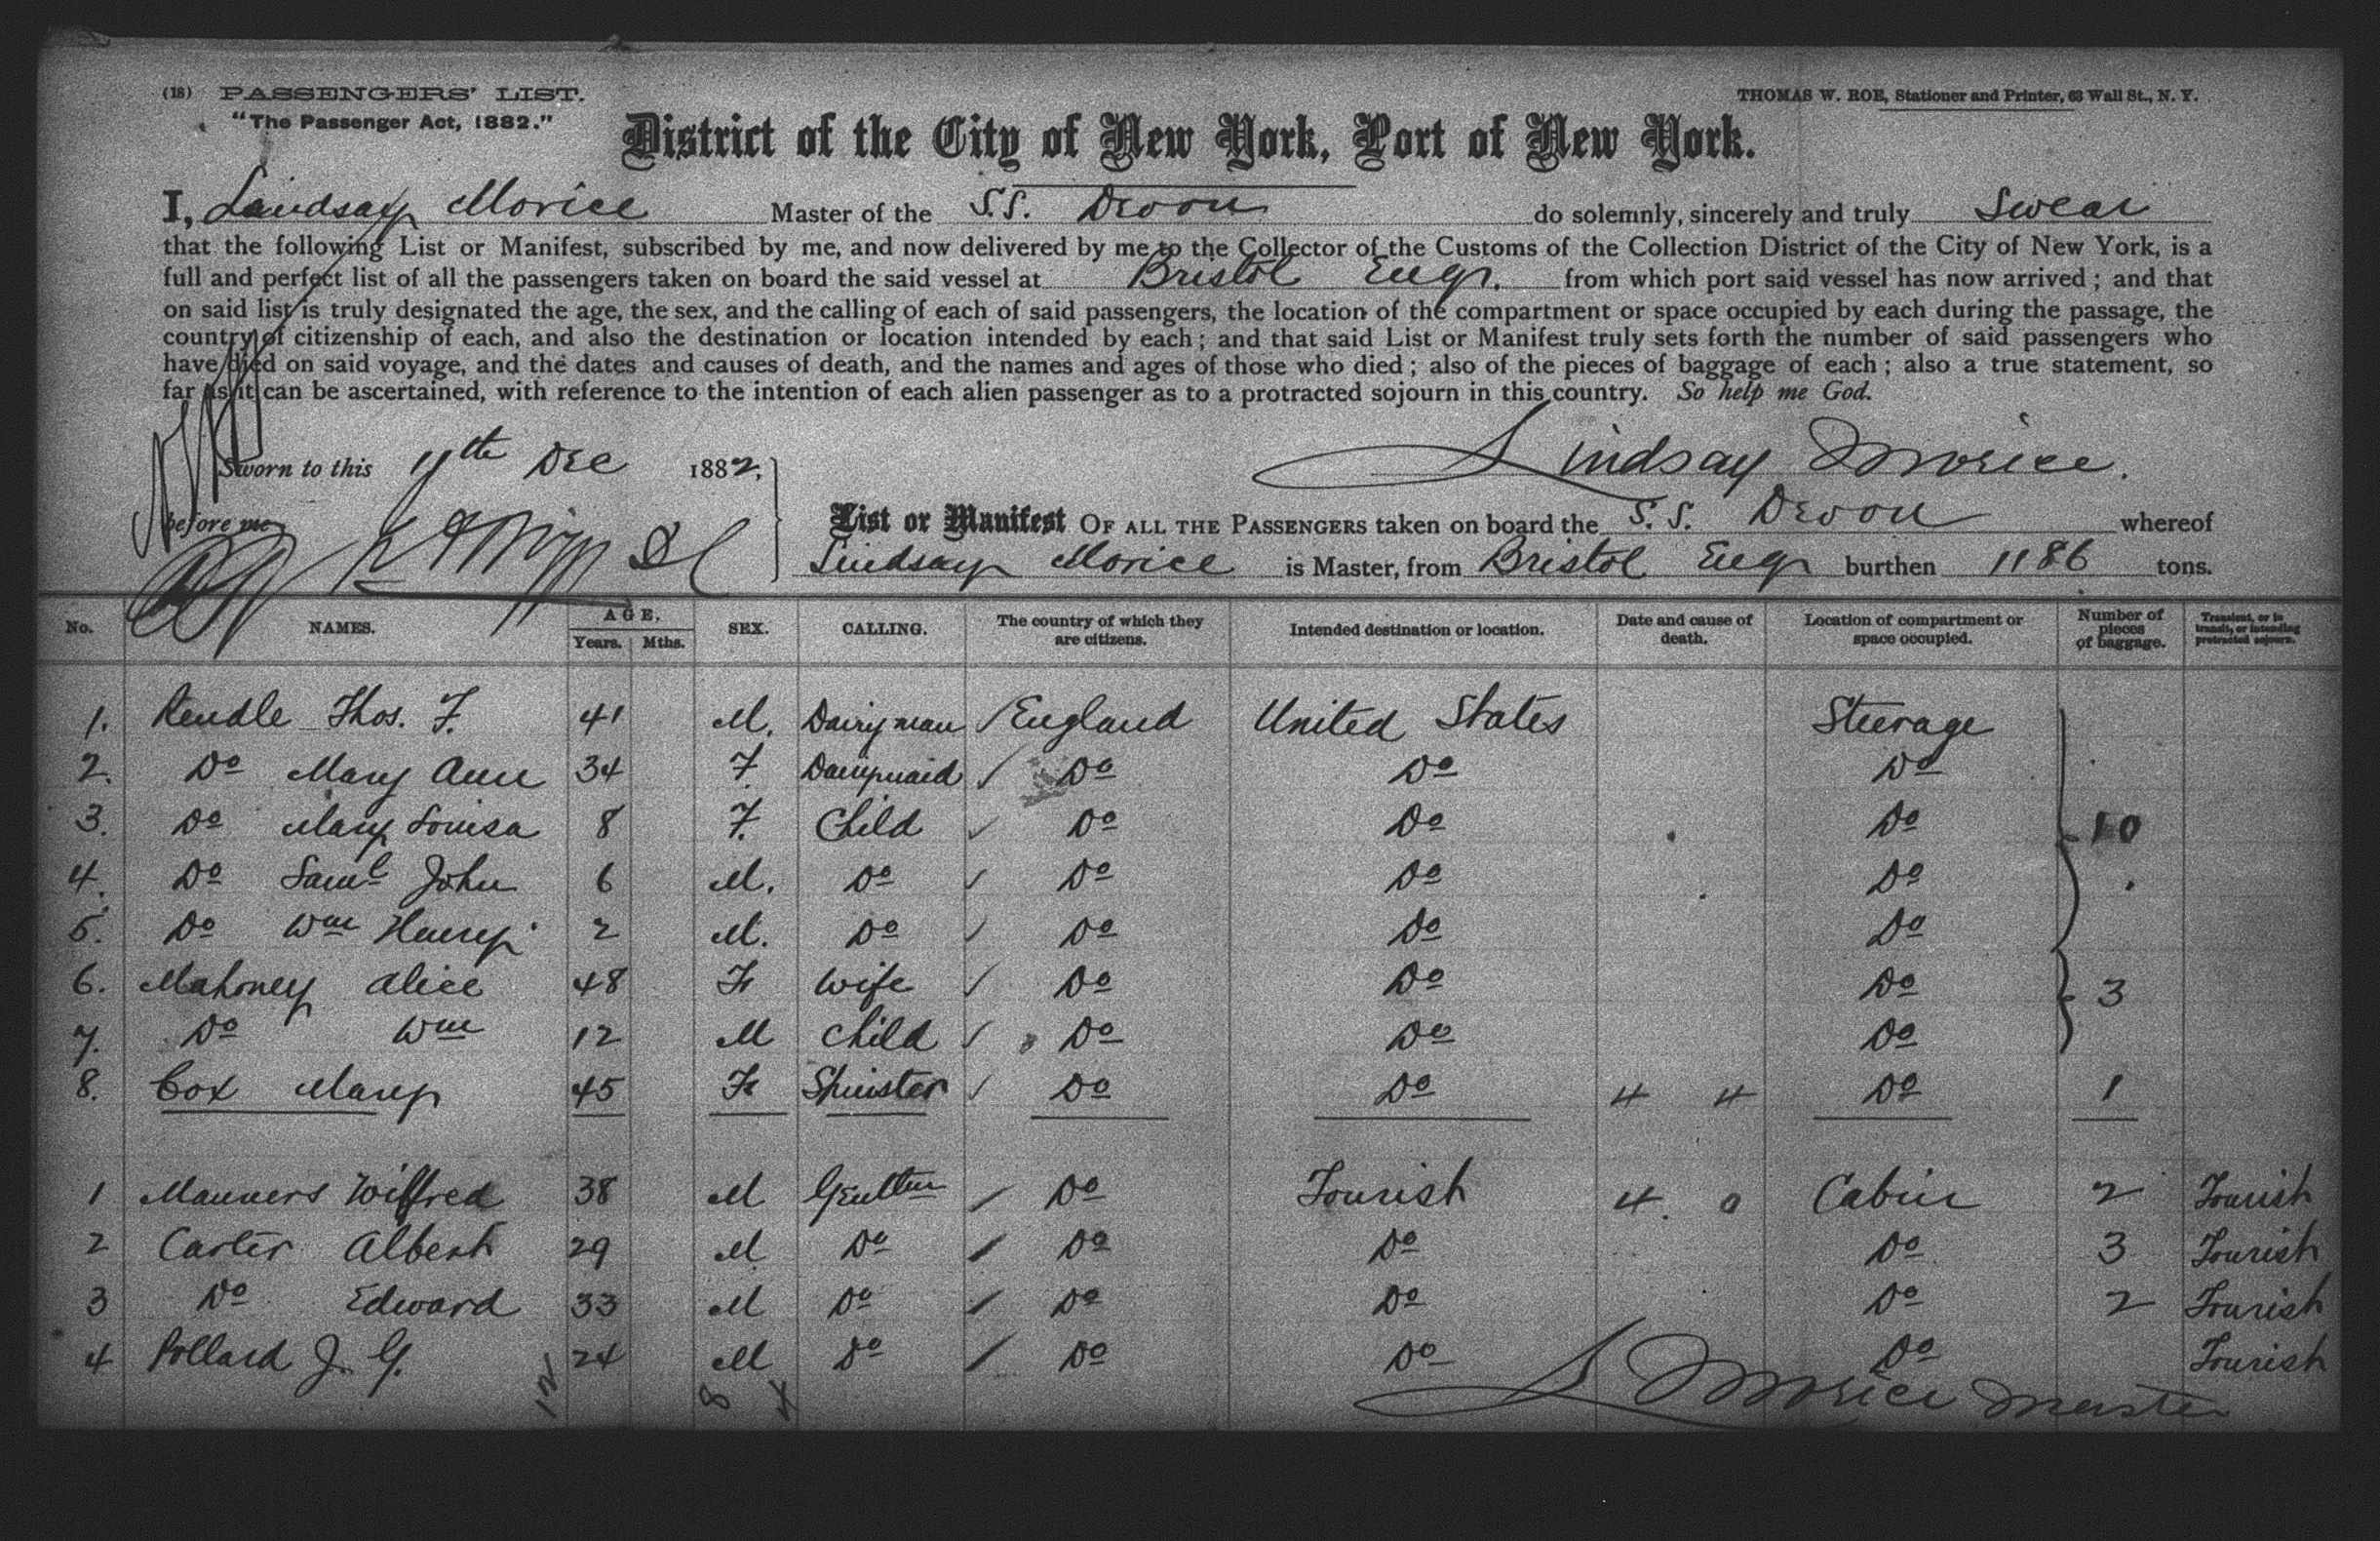 (18) PASSENGERS' LIST.
THOMAS W. ROE, Stationer and Printer, 63 Wall St., N. Y.
"The Passenger Act, 1882."
District of the City of New York, Port of New York.
I, Lindsay Morice Master of the S.S. Devon do solemnly, sincerely and truly Swear
that the following List or Manifest, subscribed by me, and now delivered by me to the Collector of the Customs of the Collection District of the City of New York, is a
full and perfect list of all the passengers taken on board the said vessel at Bristol Eng. from which port said vessel has now arrived; and that
on said list is truly designated the age, the sex, and the calling of each of said passengers, the location of the compartment or space occupied by each during the passage, the
country of citizenship of each, and also the destination or location intended by each; and that said List or Manifest truly sets forth the number of said passengers who
have died on said voyage, and the dates and causes of death, and the names and ages of those who died; also of the pieces of baggage of each; also a true statement, so
far as it can be ascertained, with reference to the intention of each alien passenger as to a protracted sojourn in this country. So help me God.
Sworn to this Dec 1882,
Lindsay Morice.
before me
List or Manifest OF ALL THE PASSENGERS taken on board the S.S. Devon whereof
Lindsay Morice is Master, from Bristol Eng burthen 1186 tons.
No. NAMES. AGE. Years. Mths. SEX. CALLING. The country of which they are citizens. Intended destination or location. Date and cause of death. Location of compartment or space occupied. Number of pieces of baggage. Transient, or in transit, or intending protracted sojourn.
1. Rendle Thos. F. 41 M. Dairyman England United States Steerage
2. Do Mary Ann 34 F. Dairymaid Do Do Do
3. Do Mary Louisa 8 F. Child Do Do Do 10
4. Do Saml John 6 M. Do Do Do Do
5. Do Wm Henry 2 M. Do Do Do Do
6. Mahoney Alice 48 F. Wife Do Do Do 3
7. Do Wm 12 M Child Do Do Do
8. Cox Mary 45 F. Spinster Do Do 4 4 Do 1
1 Manners Wilfred 38 M Gentlm Do Tourist 4. 0 Cabin 2 Tourist
2 Carter Albert 29 M Do Do Do Do 3 Tourist
3 Do Edward 33 M Do Do Do Do 2 Tourist
4 Pollard J. G. 24 M Do Do Do Do Tourist
12 8 4
L Morice Master